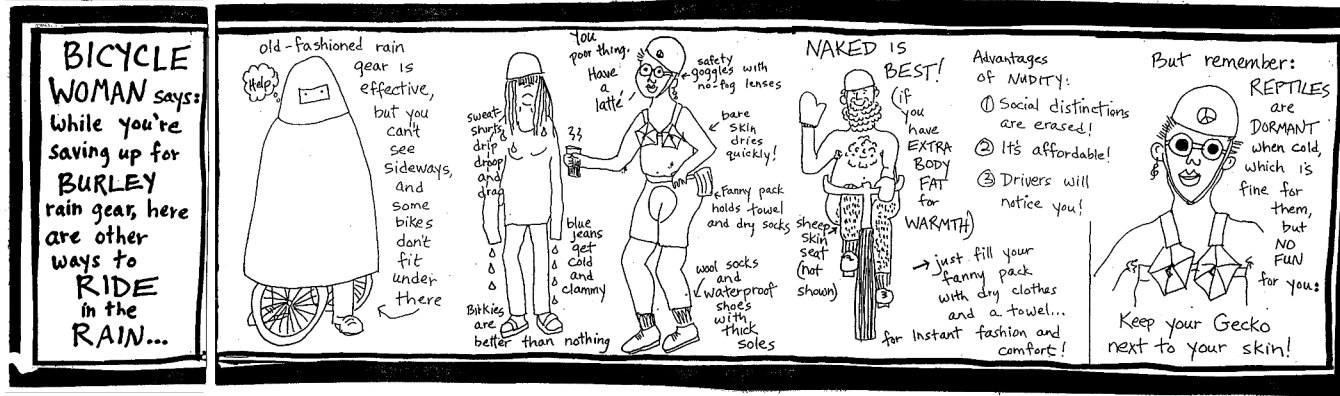 BICYCLE
WOMAN says:
While you're
saving up for
BURLEY
rain gear, here
are other
ways to
RIDE
in the
RAIN...
old-fashioned rain
gear is
effective,
but you
can't
see
sideways,
and
some
bikes
don't
fit
under
there
Help!
sweat-
shirts
drip
droop
and
drag
blue
jeans
get
cold
and
clammy
Birkies
are
better than nothing
You
poor thing.
Have
a
latté
safety
goggles with
no-fog lenses
bare
skin
dries
quickly!
Fanny pack
holds towel
and dry socks
wool socks
and
waterproof
shoes
with
thick
soles
NAKED IS
BEST!
(if
you
have
EXTRA
BODY
FAT
for
WARMTH)
sheep
skin
seat
(not
shown)
→ just fill your
fanny pack
with dry clothes
and a towel...
for Instant fashion and
comfort!
Advantages
of NUDITY:
① Social distinctions
are erased!
② It's affordable!
③ Drivers will
notice you!
But remember:
REPTILES
are
DORMANT
when cold,
which is
fine for
them,
but
NO
FUN
for you:
Keep your Gecko
next to your skin!